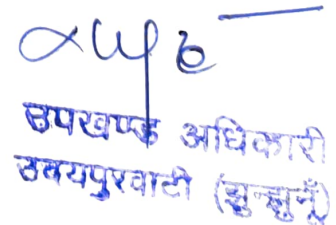 उपखण्ड अधिकारी
उदयपुरवाटी (झुन्झुनूँ)